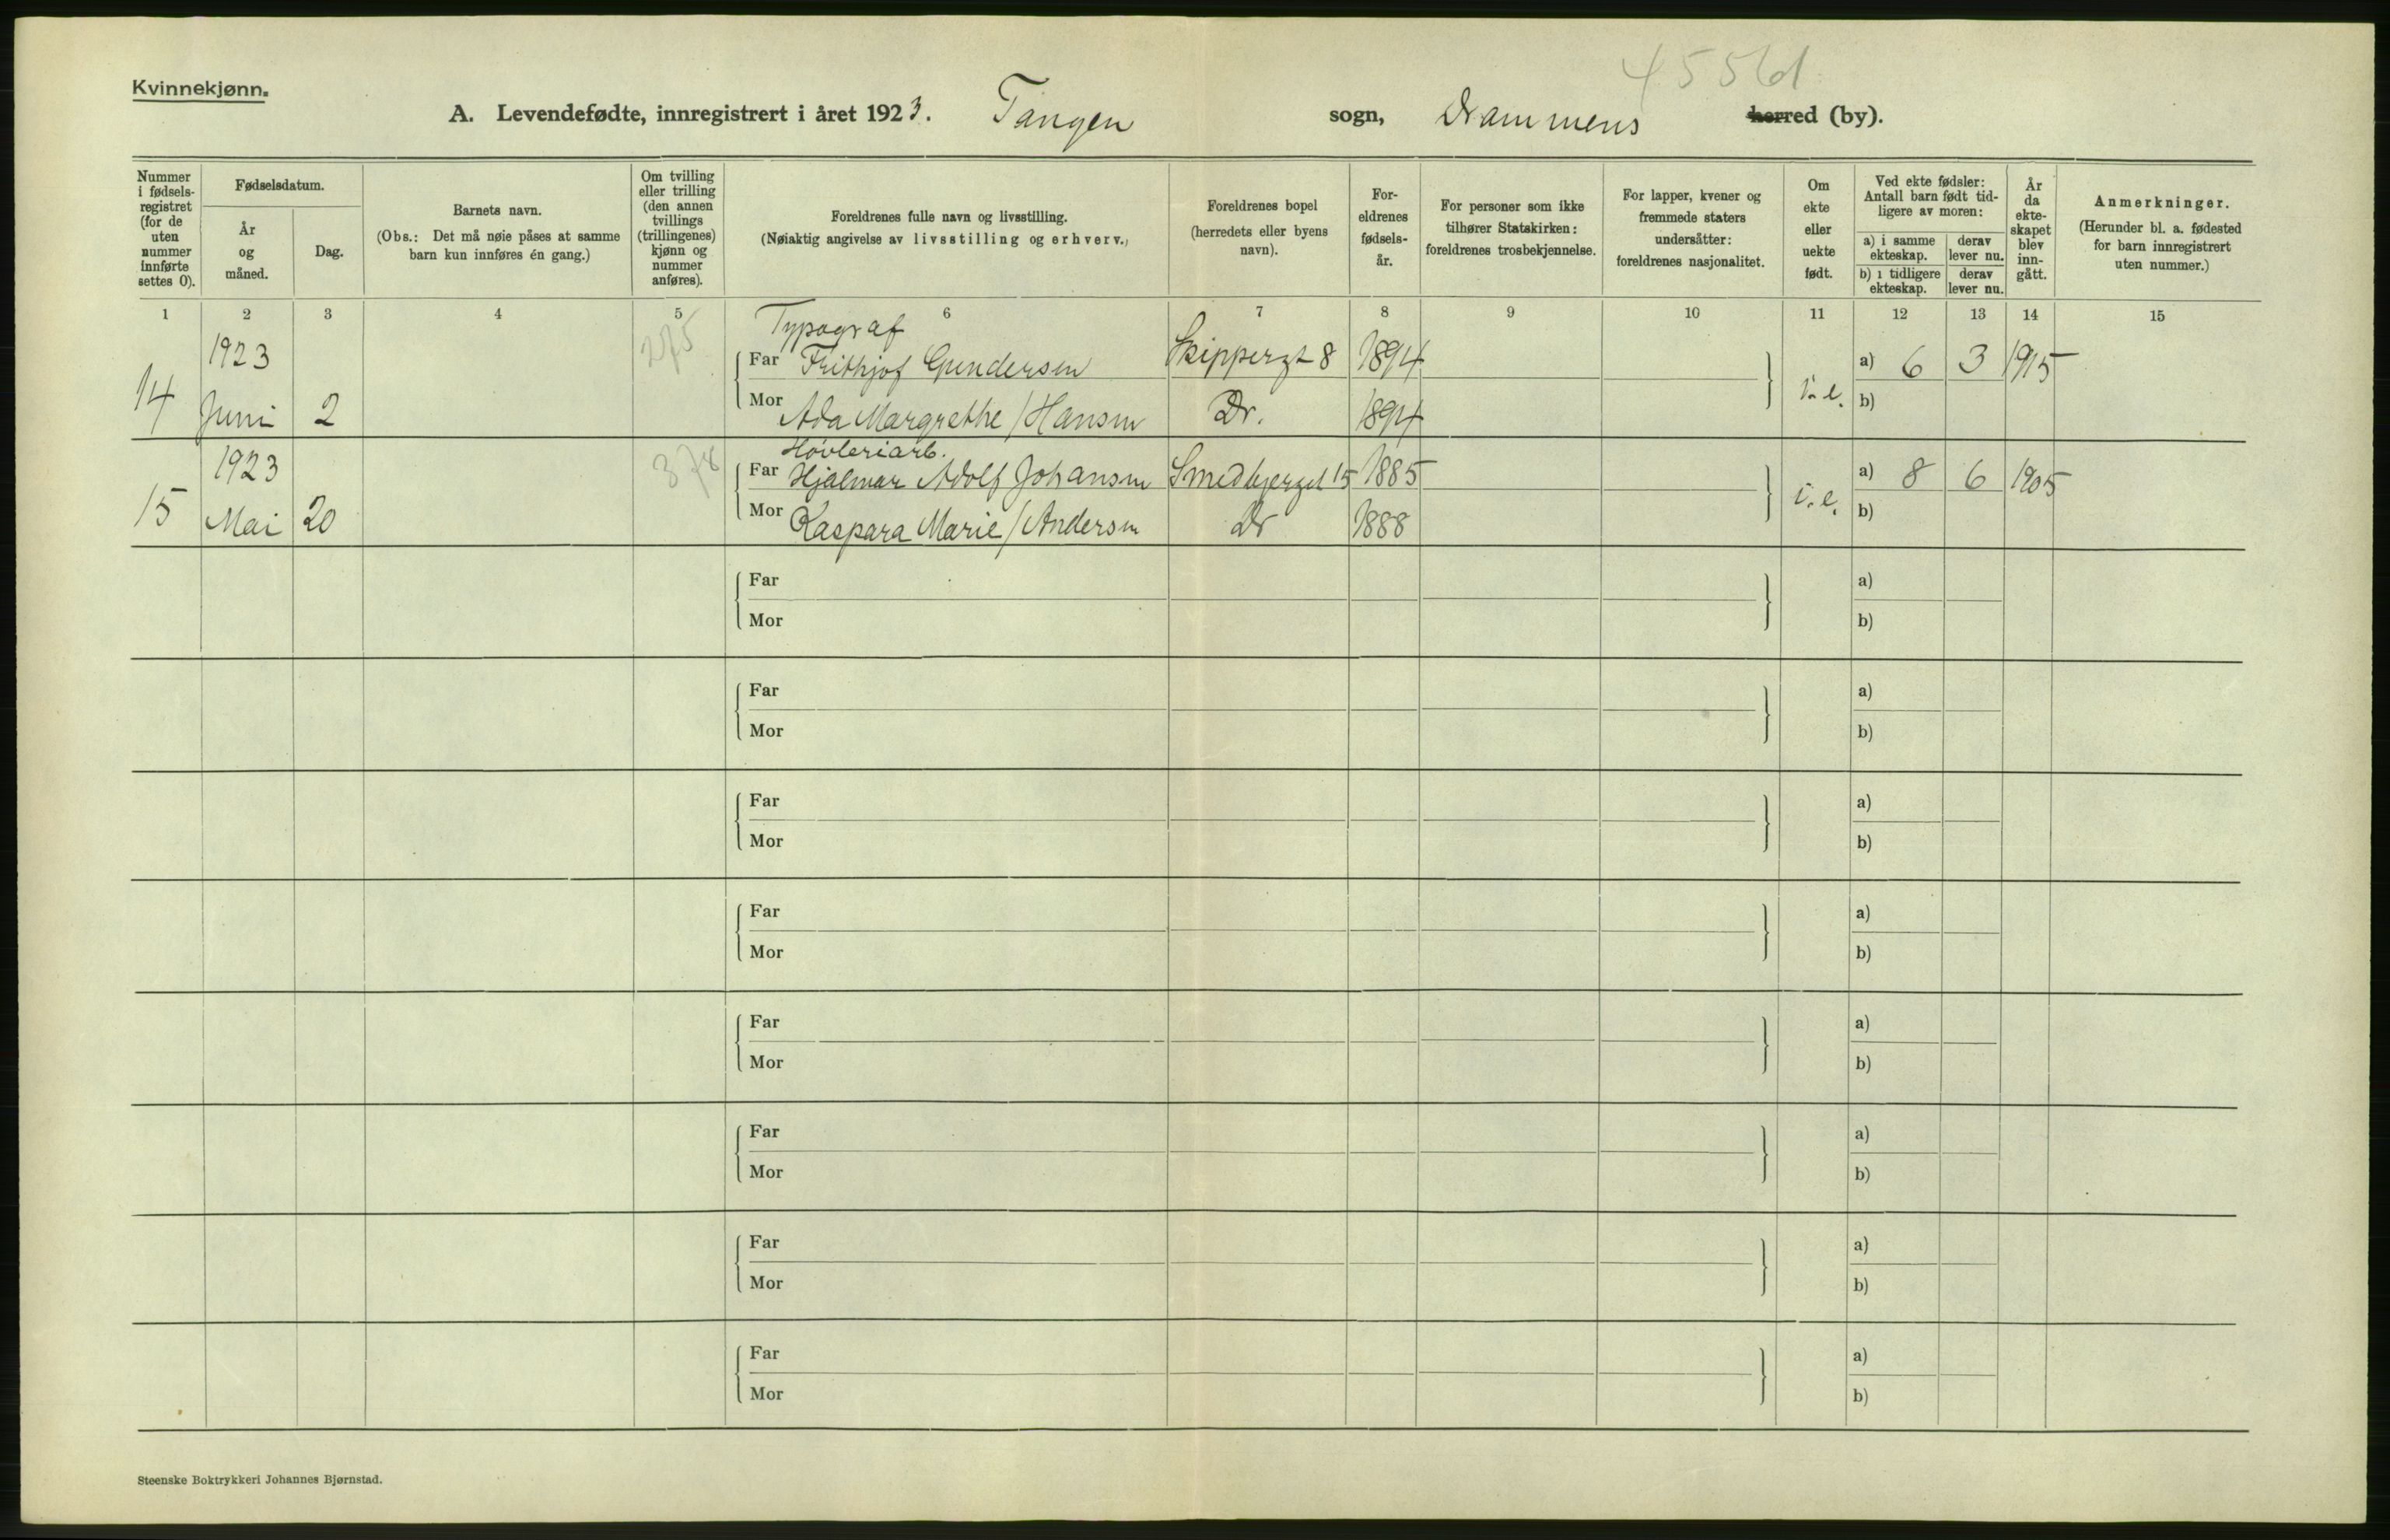 4556d
Kvinnekjønn.
A. Levendefødte, innregistrert i året 1923. Tangen sogn, Drammens herred (by).
Nummer i fødsels-registret (for de uten nummer innførte settes 0).
Fødselsdatum.
År og måned.
Dag.
Barnets navn.
(Obs.: Det må nøie påses at samme barn kun innføres én gang.)
Om tvilling eller trilling (den annen tvillings (trillingenes) kjønn og nummer anføres).
Foreldrenes fulle navn og livsstilling.
(Nøiaktig angivelse av livsstilling og erhverv.)
Foreldrenes bopel (herredets eller byens navn).
For-eldrenes fødsels-år.
For personer som ikke tilhører Statskirken: foreldrenes trosbekjennelse.
For lapper, kvener og fremmede staters undersåtter: foreldrenes nasjonalitet.
Om ekte eller uekte født.
Ved ekte fødsler: Antall barn født tid-ligere av moren:
a) i samme ekteskap.
derav lever nu.
b) i tidligere ekteskap.
derav lever nu.
År da ekte-skapet blev inn-gått.
Anmerkninger.
(Herunder bl. a. fødested for barn innregistrert uten nummer.)
1 2 3 4 5 6 7 8 9 10 11 12 13 14 15
Typograf
1923 275 Far Frithjof Gundersen Skippergt 8 1894 a) 6 3 1915
14 Juni 2 Mor Ada Margrethe / Hansen Dr. 1894 i. e. b)
Høvleriarb.
1923 378 Far Hjalmar Adolf Johansen Smedbjerget 15 1885 a) 8 6 1905
15 Mai 20 Mor Kaspara Marie / Andersen Dr 1888 i. e. b)
Far a)
Mor b)
Far a)
Mor b)
Far a)
Mor b)
Far a)
Mor b)
Far a)
Mor b)
Far a)
Mor b)
Far a)
Mor b)
Far a)
Mor b)
Steenske Boktrykkeri Johannes Bjørnstad.